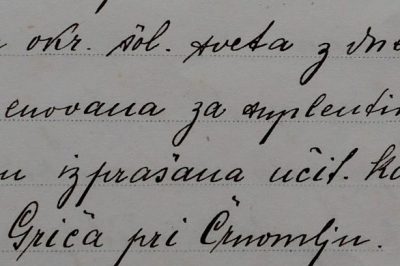 okr. šol. sveta z dne
enovana za suplentin
izprašana učit. ka
Griča pri Črnomlju.